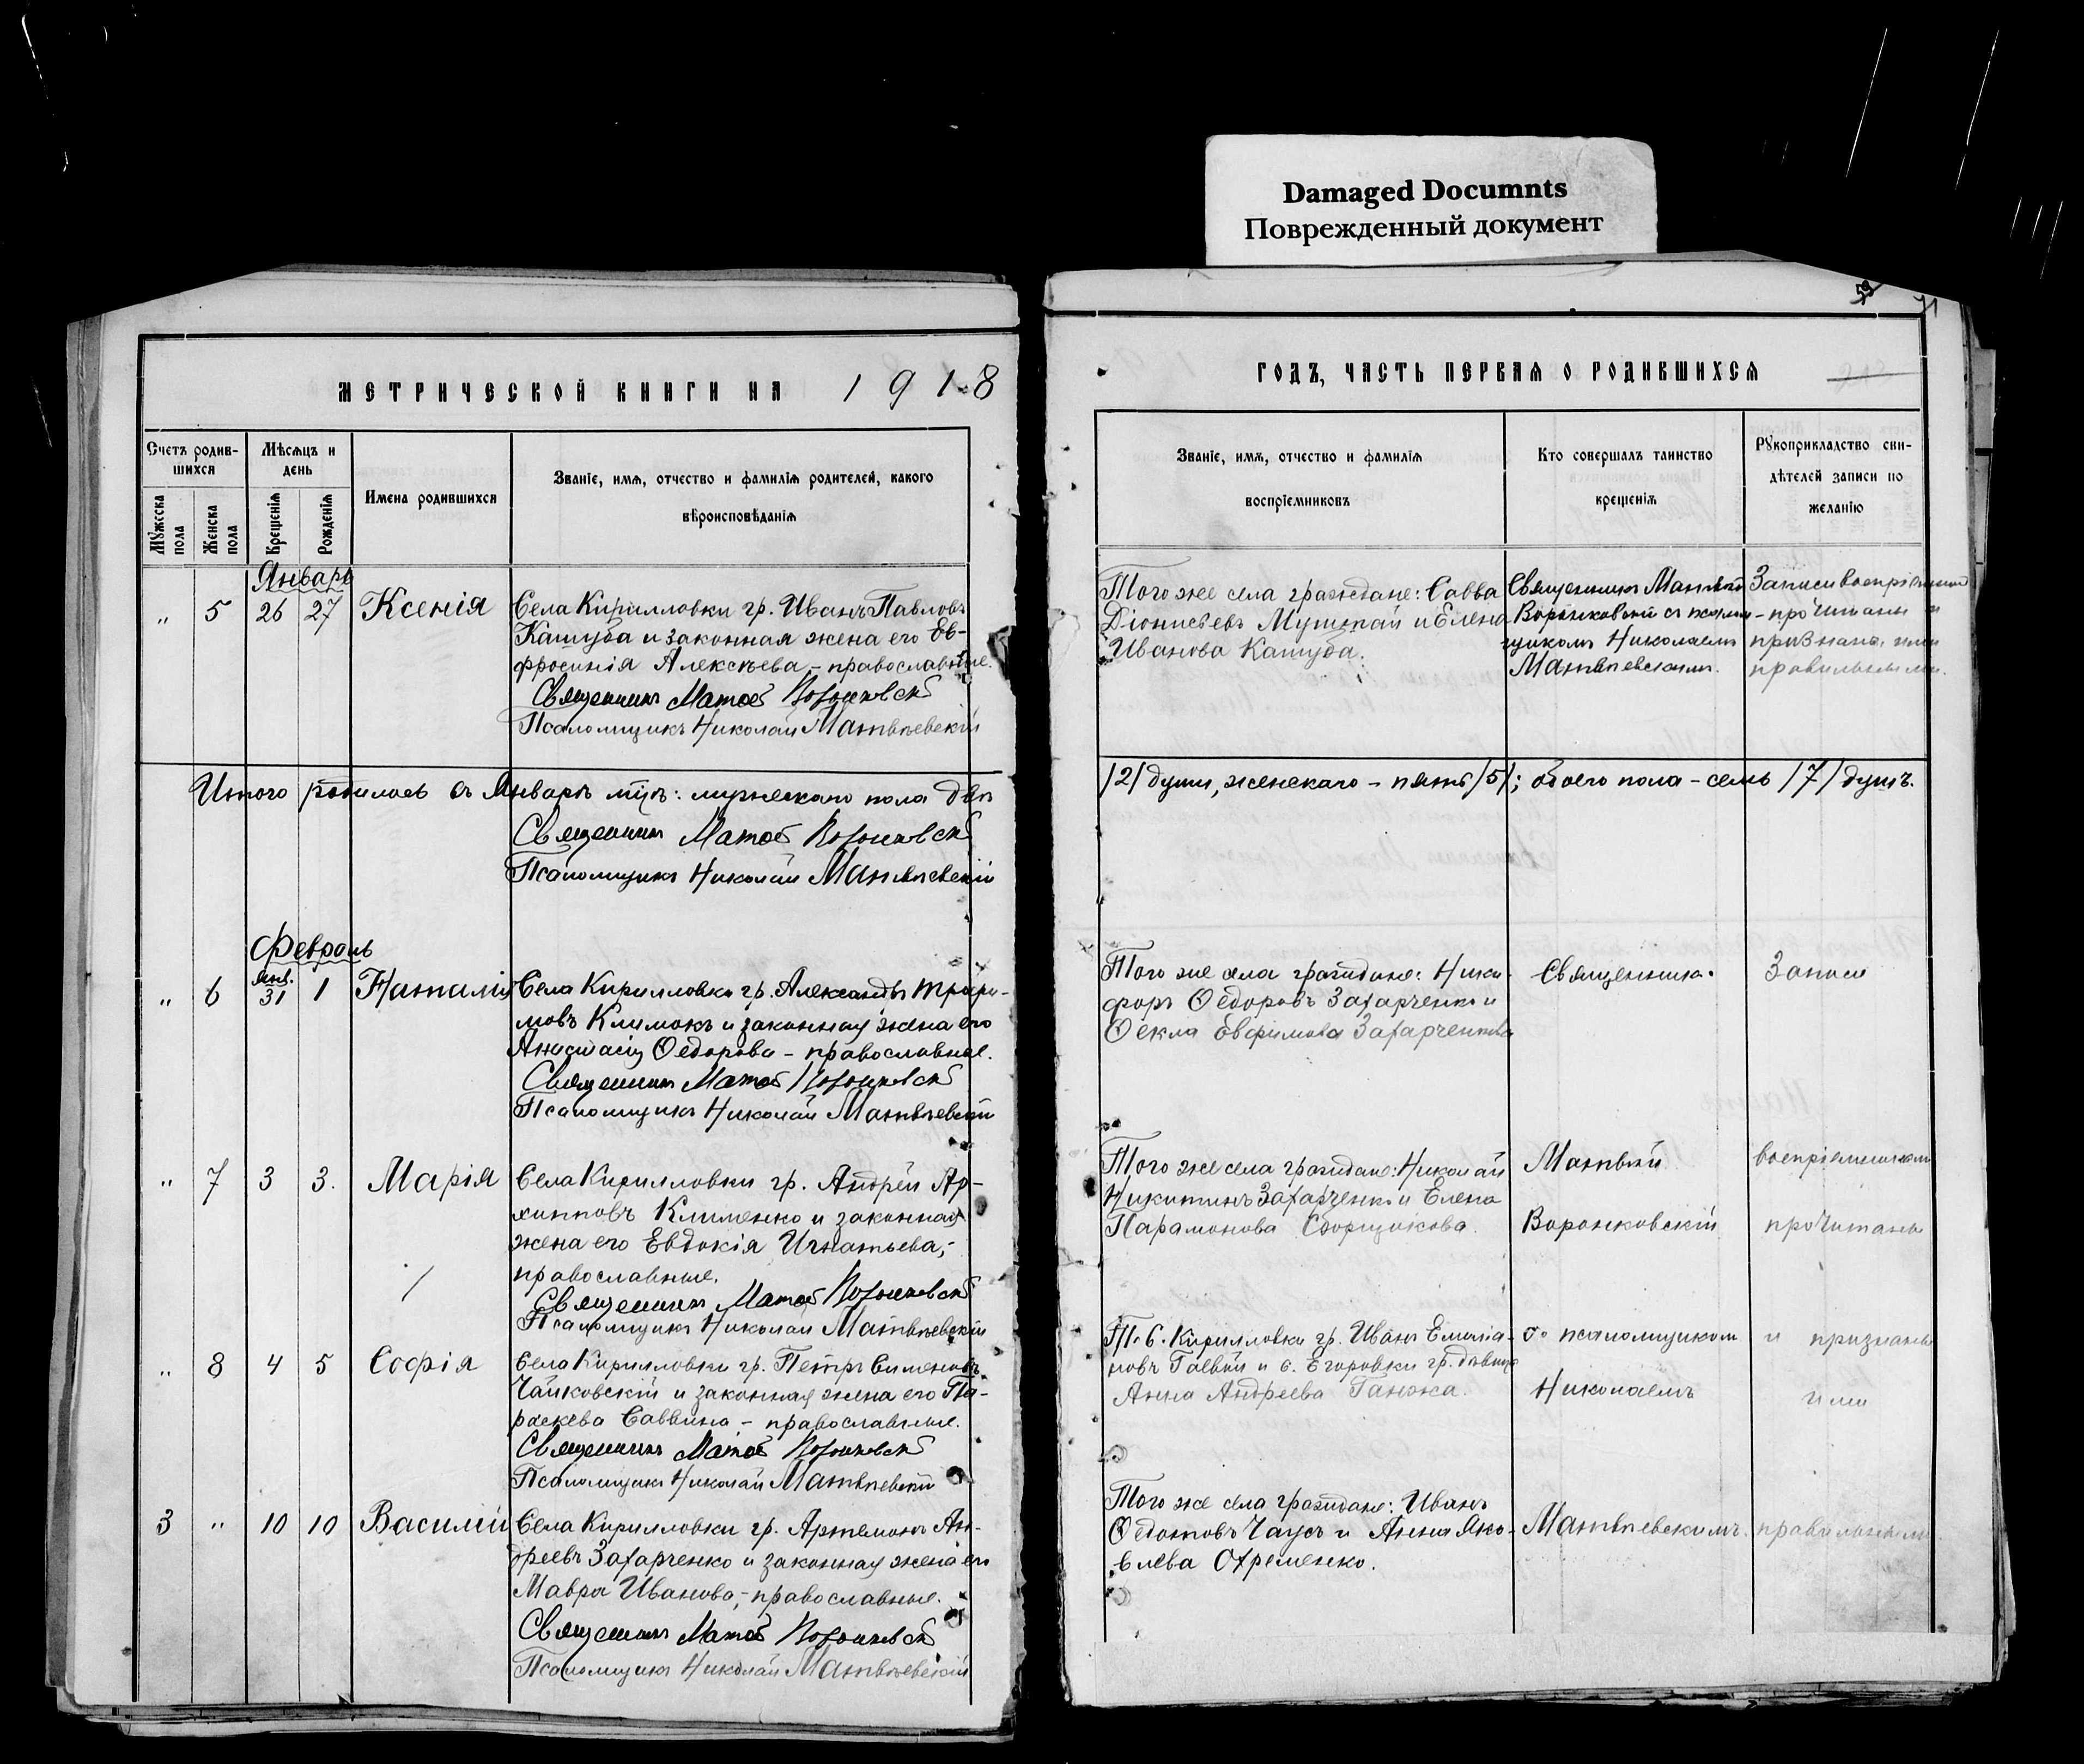 Damaged Documnts
Поврежденный документ
МЕТРИЧЕСКОЙ КНИГИ НА 1918
Счетъ родив-
шихся
Мѣсяцъ и
день
Мужеска
пола
Женска
пола
Крещенія
Рожденія
Имена родившихся
Званіе, имя, отчество и фамилія родителей, какого
вѣроисповѣданія
Январь
" 5 26 27 Ксенія
Села Кирилловки гр. Иванъ Павловъ
Кашуба и законная жена его Ев-
фросинія Алексѣева, - православные.
Священникъ Матвѣй Воронковскій
Псаломщикъ Николай Матвѣевскій
Итого родилось въ Январѣ мѣс: мужескаго пола двѣ
Священникъ Матвѣй Воронковскій
Псаломщикъ Николай Матвѣевскій
Февраль
" 6 Янв. 31 1 Наталія
Села Кирилловки гр. Александръ Трофи-
мовъ Климокъ и законная жена его
Анастасія Ѳедорова - православные.
Священникъ Матвѣй Воронковскій
Псаломщикъ Николай Матвѣевскій
" 7 3 3. Марія
Села Кирилловки гр. Андрей Ар-
хиповъ Клименко и законная
жена его Евдокія Игнатьева, -
православные.
Священникъ Матвѣй Воронковскій
Псаломщикъ Николай Матвѣевскій
" 8 4 5 Софія
Села Кирилловки гр. Петръ Симеоновъ
Чайковскій и законная жена его Па-
раскева Саввина - православные.
Священникъ Матвѣй Воронковскій
Псаломщикъ Николай Матвѣевскій
3 " 10 10 Василій
Села Кирилловки гр. Артемонъ Ан-
дреевъ Захарченко и законная жена его
Мавра Иванова, - православные.
Священникъ Матвѣй Воронковскій
Псаломщикъ Николай Матвѣевскій
59
ГОДЪ, ЧАСТЬ ПЕРВАЯ О РОДИВШИХСЯ
Званіе, имя, отчество и фамилія
воспріемниковъ
Кто совершалъ таинство
крещенія
Рукоприкладство сви-
дѣтелей записи по
желанію
Того же села граждане: Савва
Діонисьевъ и Елена
Иванова Кашуба.
Священникъ Матвѣй
Воронковскій съ псалом-
щикомъ Николаемъ
Матвѣевскимъ.
Записи воспріемниками
прочитаны и
признаны ими
правильными.
/2/ души, женскаго - пять /5/; обоего пола - семь /7/ душъ.
Того же села граждане: Ники-
форъ Ѳедоровъ Захарченко и
Ѳекла Евфимова Захарченкова
Священникъ
Записи
Того же села граждане: Николай
Никитинъ Захарченко и Елена
Парамонова
Матвѣй
Воронковскій
воспріемниками
прочитаны
Т. с. Кирилловки гр. Иванъ Емилiа-
новъ Гаевый и с. Егоровки гр. дѣвица
Анна Андреева Ганжа.
съ псаломщикомъ
Николаемъ
и признаны
ими
Того же села граждане: Иванъ
Ѳедотовъ Чаусъ и Анна Яко-
влева Охременко.
Матвѣевскимъ.
правильными